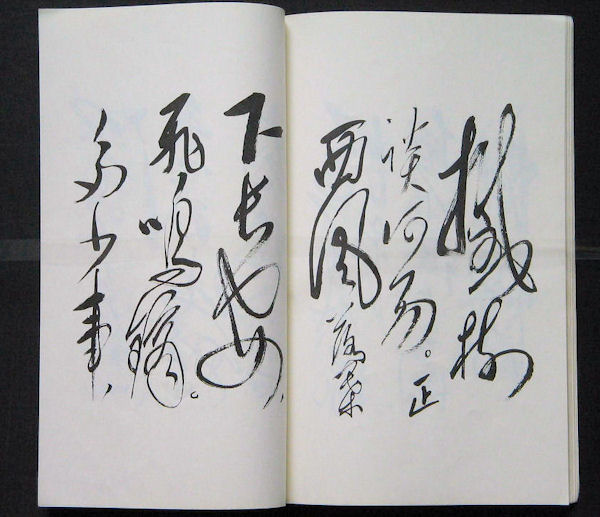 撼樹
談何易。正
西風落葉
下長安，
飛鳴鏑。
多少事，